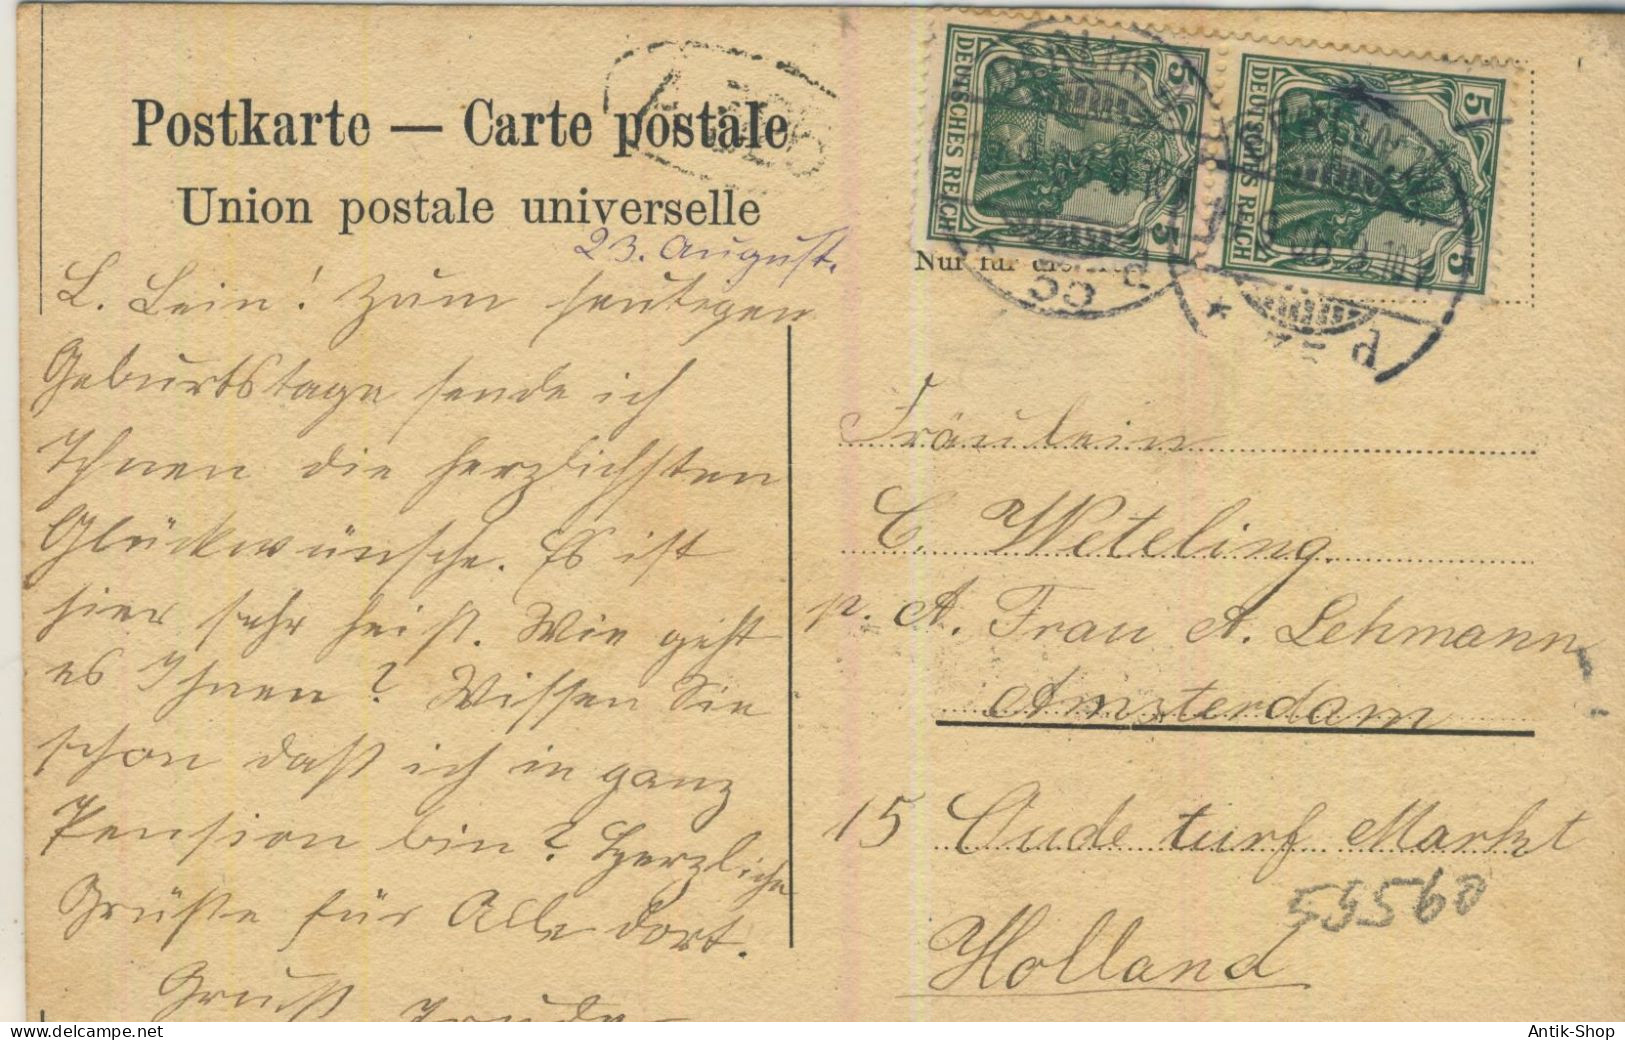 Postkarte — Carte postale
Union postale universelle
23. August.
L. Lein! Zum heutigen
Geburtstage sende ich
Ihnen die herzlichsten
Glückwünsche. Es ist
hier sehr heiß. Wie geht
es Ihnen? Wissen Sie
schon daß ich in ganz
Pension bin? Herzliche
Grüße für Alle dort.
Gruß Trude
DEUTSCHES REICH 5 5
DEUTSCHES REICH 5 5
Nur für die
Fräulein
C. Weteling.
p. A. Frau A. Lehmann
Amsterdam
15 Oude turf Markt
55560
Holland
Antik-Shop
www.delcampe.net